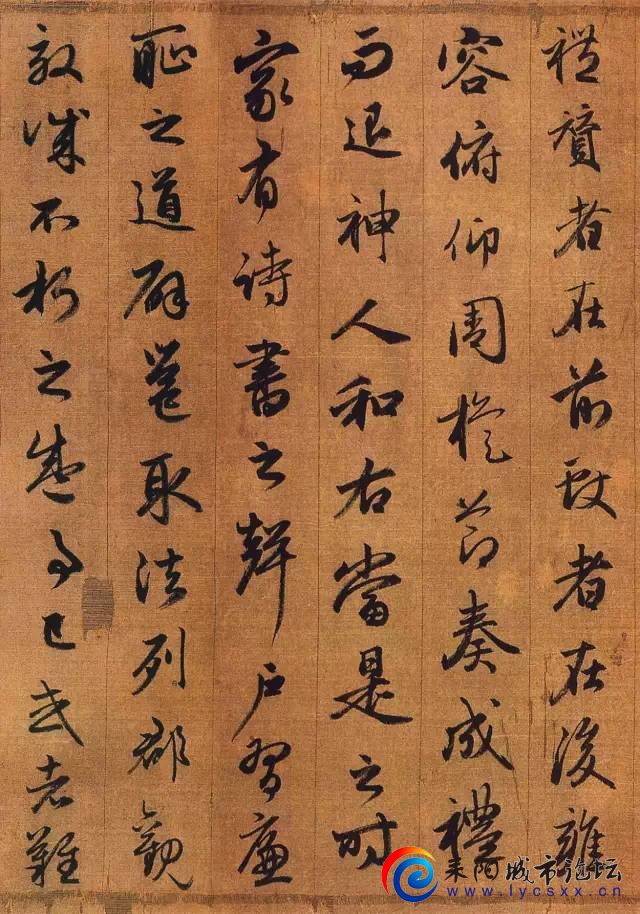 禮賛者在前者在後雍
容俯仰周旋節奏成禮
而退神人和右當是之时
家有诗書之聲户習廉
耻之道辟雍取法列郡觀
效诚不朽之盛事已或者難
耒阳城市论坛
www.lycsxx.cn